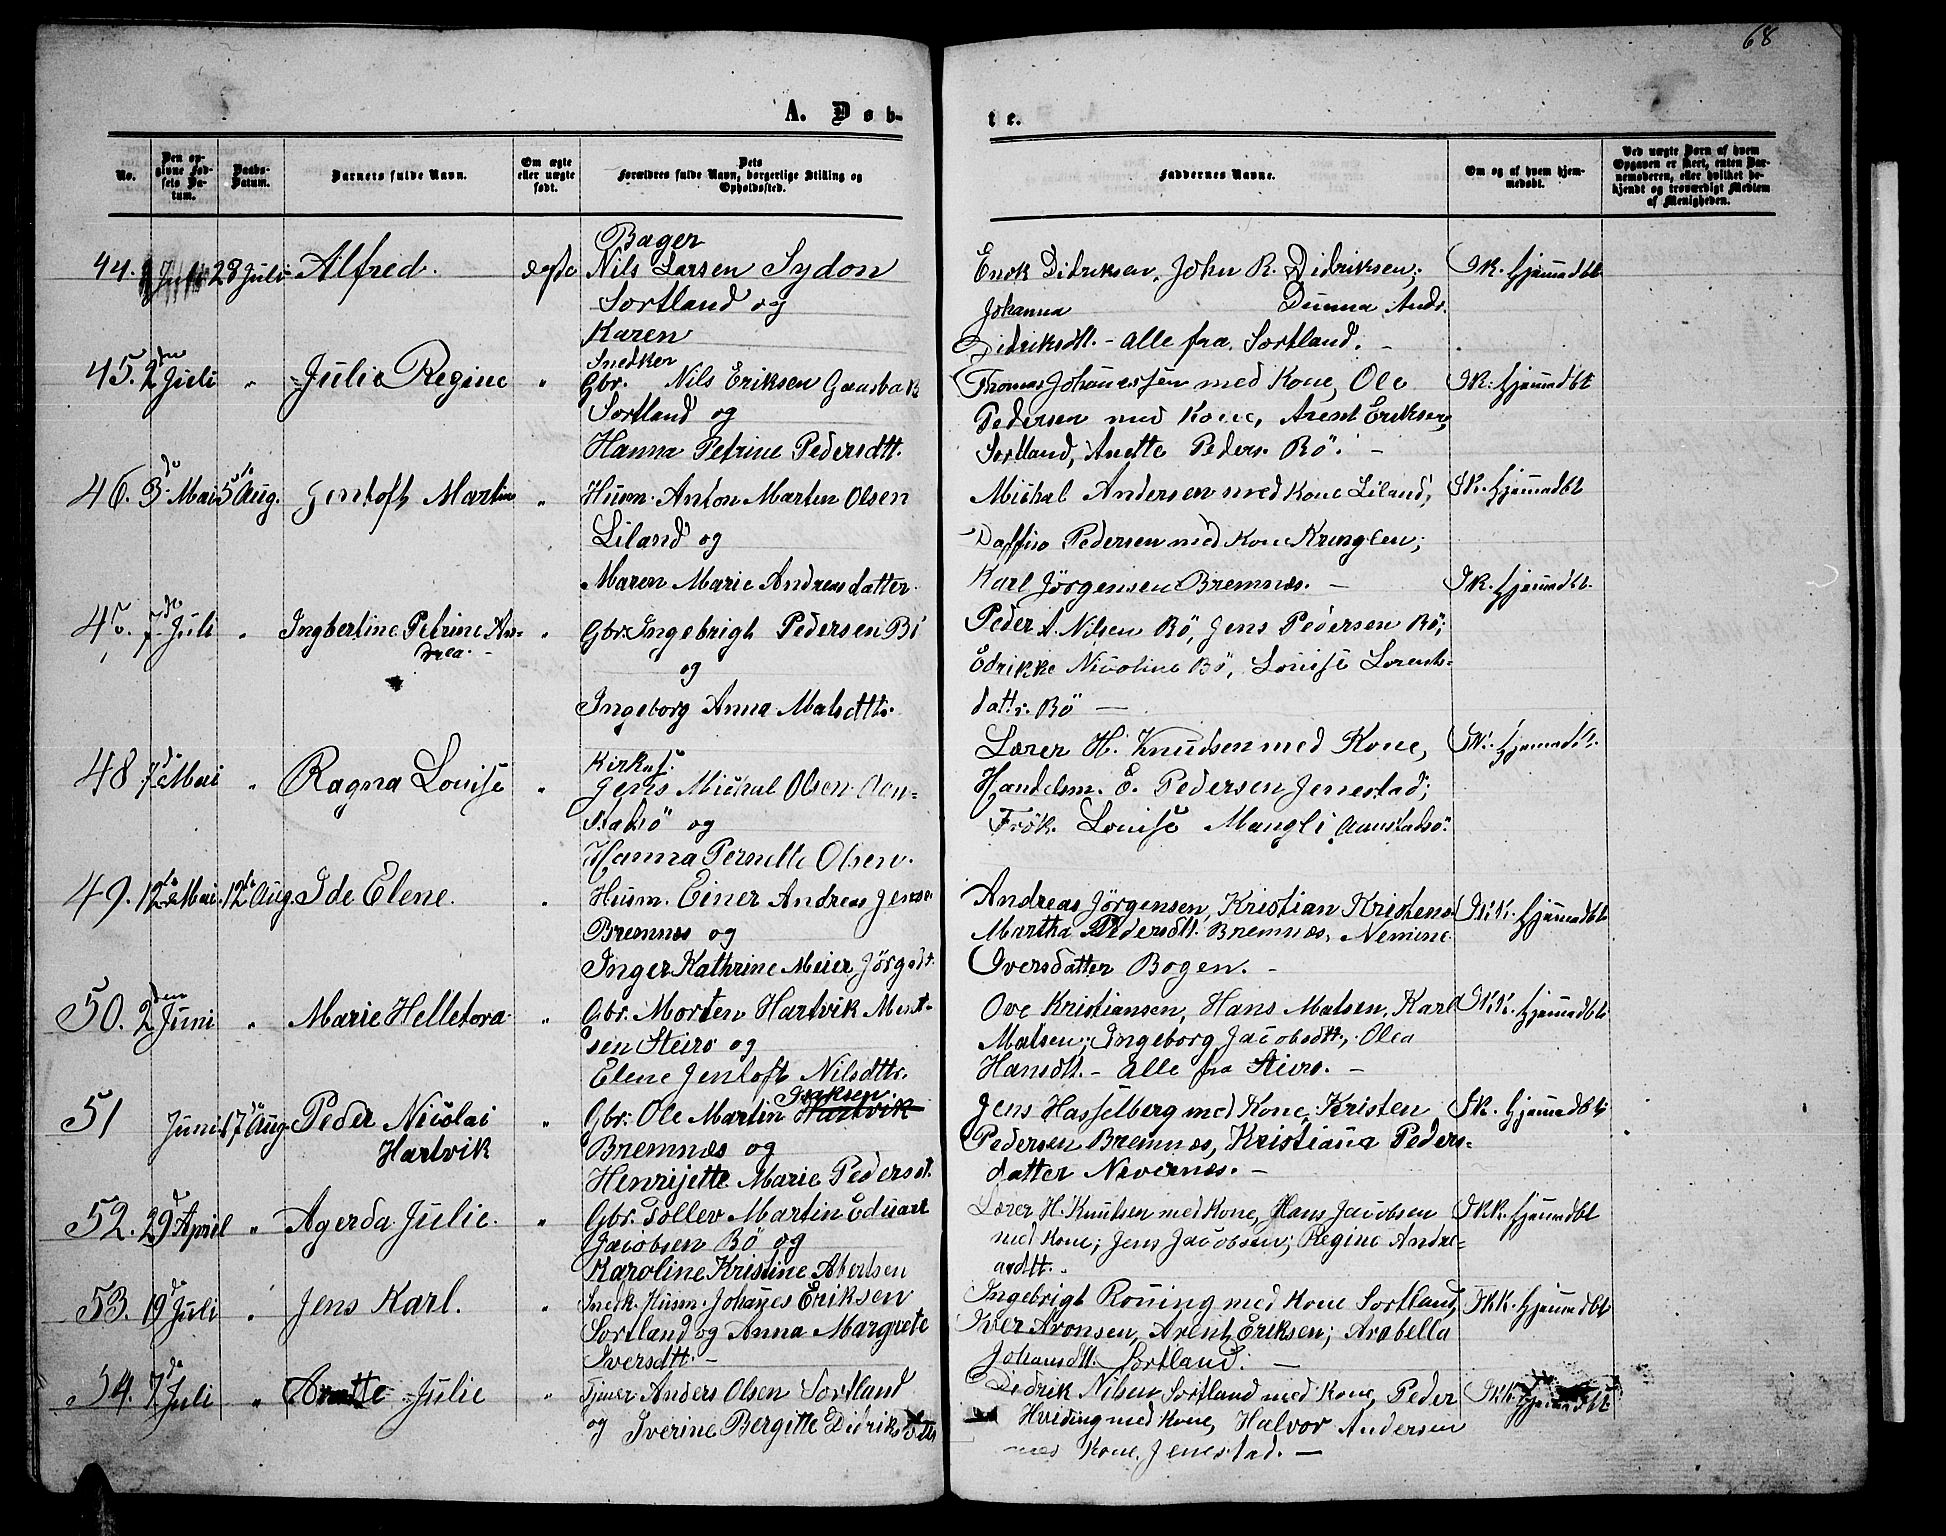 68
A. Døb-
te.
No.
Den opgivne Fødsels Datum.
Daabs-Datum.
Barnets fulde Navn.
Om ægte eller uægte født.
Dets Forældres fulde Navn, borgerlige Stilling og Opholdssted.
Faddernes Navne.
Om og af hvem hjemmedøbt.
Ved uægte Børn af hvem Opgaven er skeet, enten Barnemoderen, eller hvilket bekjendt og troværdigt Medlem af Menigheden.
44. 28 Juli Alfred. ægte
Bager
Nils Larsen Sydon
Sortland og
Karen
Enok Didriksen, John R. Didriksen;
Johanna Dunna Andr.
Didriksdtt. - Alle fra Sortland. -
IK. hjemmedbt
45. 2den Juli " Julie Regine "
Snedker
Gbr. Nils Eriksen Gaasbak
Sortland og
Hanna Petrine Pedersdtt.
Thomas Johannesen med Kone, Ole
Pedersen med Kone, Arent Eriksen,
Sortland, Anette Peders. Bö. -
IK. hjemmedbt
46. 3d Mai 5te Aug. Gentoft Martin "
Husm. Anton Marten Olsen
Liland og
Maren Marie Andreasdatter.
Michal Andersen med Kone Liland,
Daffino Pedersen med Kone Kringlen;
Karl Jörgensen Bremnæs. -
IK. hjemmedbt
7de Juli " Ingbertine Petrine An-
drea. - "
Gbr. Ingebrigt Pedersen Bö
og
Ingeborg Anna Matsdttr.
Peder A. Nilsen Bö, Jens Pedersen Bö;
Edrikke Nicoline Bö, Louise Lorents-
dattr. Bö -
IK. hjemmedbt.
48 7de Mai " Ragna Louise "
Kirkes.
Jens Michal Olsen Aan-
stadsö og
Hanna Pernelle Olsen.
Lærer H. Knudsen med Kone,
Handelsm. E. Pedersen Jenestad;
Frök. Louise Mangli Aanstadsö.
IK. hjemmedbt.
49. 12te Mai. 12te Aug. Ide Elene. "
Husm. Einer Andreas Jensen
Bremnæs og
Inger Kathrine Meier Jörgsdt.
Andreas Jörgensen, Kristian Kristens.
Martha Pedersdtt. Bremnæs, Nemine
Oversdatter Bogen. -
IKK. hjemmedbt
50. 2den Juni " Marie Helletora "
Gbr. Morten Hartvik Ment-
sen Steiro og
Elene Jentoft Nilsdttr.
Ove Kristiansen, Hans Matsen, Karl
Matsen; Ingeborg Jacobsdtt., Olea
Hansdtt. - Alle fra Steiro. -
IKK. hjemmedbt
51 Juni 17de Aug. Peder Nicolai
Hartvik "
Isaksen
Gbr. Ole Martin Hartvik
Bremnæs og
Henrijette Marie Pedersdt.
Jens Hasselberg med Kone, Kristen
Pedersen Bremnæs, Kristiana Peders-
datter Nevernæs. -
IK. hjemmedbt
52. 29d April " Agerda Julie. "
Gbr. Tollev Martin Eduart
Jacobsen Bö og
Karoline Kristine Abertsen
Lærer H. Knutsen med Kone, Hans Jacobsen
med Kone; Jens Jacobsen; Regine Andre-
asdtt. -
IKK. hjemmedbt
53. 19d Juli " Jens Karl. "
Snedk. Husm. Johannes Eriksen
Sortland og Anna Margrete
Iversdtt. -
Ingebrigt Roning med Kone Sortland,
Iver Aronsen, Arent Eriksen; Arabella
Johansdtt. Sortland. -
IKK. hjemmedbt
54. 7d Juli " Anette Julie "
Tjener Anders Olsen Sortland
og Iverine Bergitte Didriksdtt.
Didrik Nilsen Sortland med Kone, Peder
Hviding med Kone, Halvor Andersen
med Kone, Jenestad. -
IKK. hjemmedbt